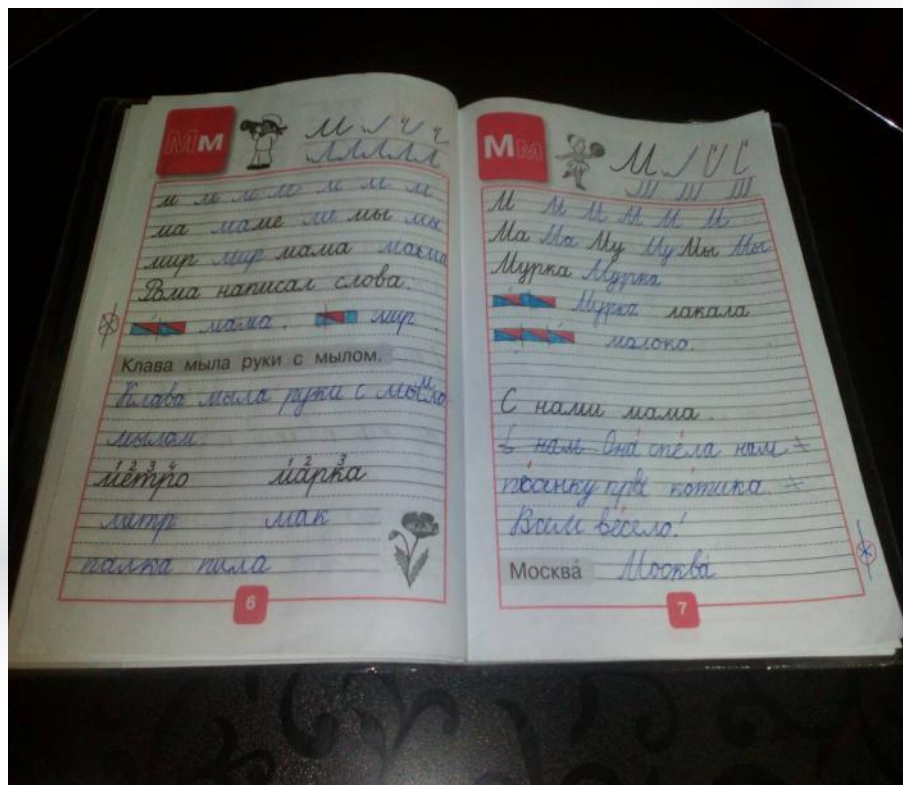 Мм
м м м м м м м
ма маме ми мы мы
мир мир мама мама
Рома написал слова.
мама. мир
Клава мыла руки с мылом.
Клава мыла руки с
мылом.
1 2 3 4 1 2 3
метро марка
метр мак
палка пила
6
Мм
М М М М М М
Ма Ма Му Му Мы Мы
Мурка Мурка
Мурка лакала
малоко.
С нами мама.
нам Она спела нам
котика.
Всем весело!
Москва́ Москва́
7